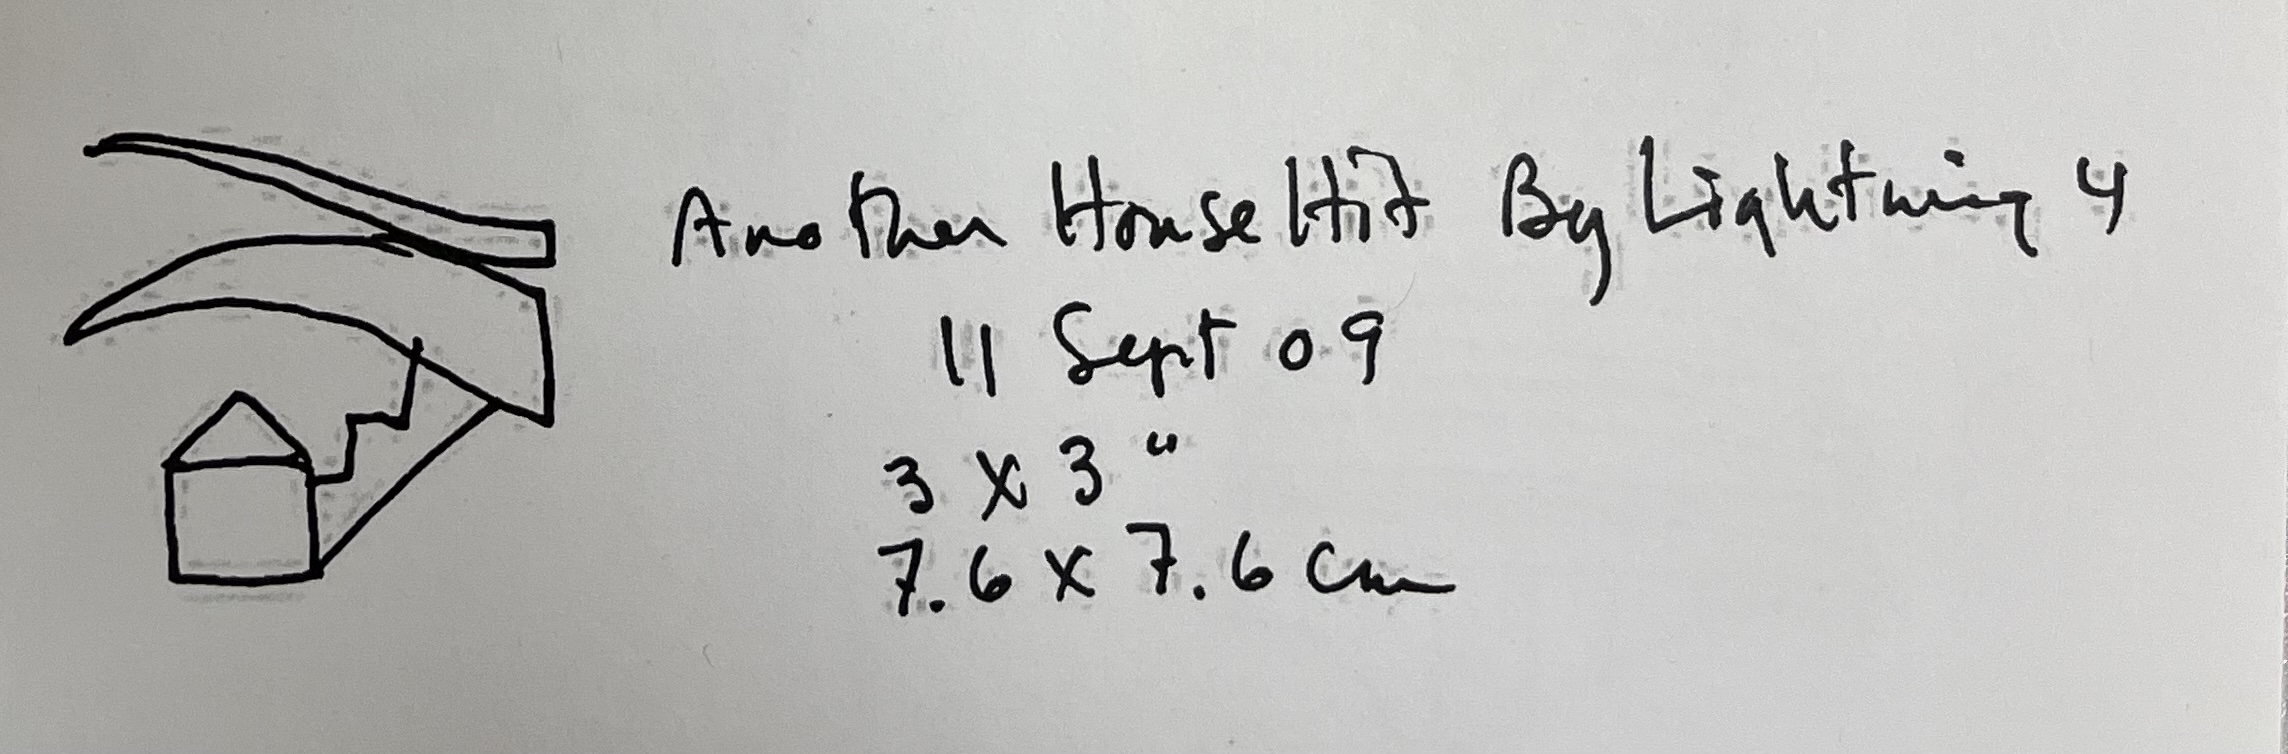 Another House Hit By Lightning 4
11 Sept 09
3 x 3"
7.6 x 7.6 cm